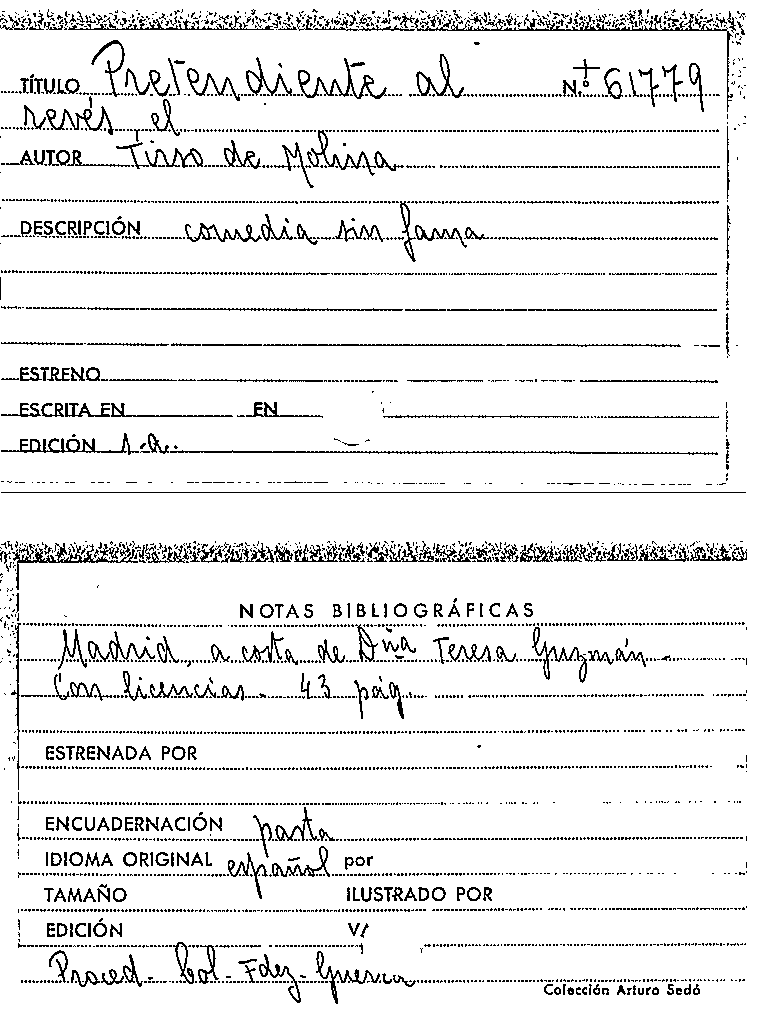 TÍTULO Pretendiente al N.º + 61779
revés, el
AUTOR Tirso de Molina
DESCRIPCIÓN comedia sin fama
ESTRENO
ESCRITA EN EN
EDICIÓN s.a.
NOTAS BIBLIOGRÁFICAS
Madrid, a costa de Dña Teresa Guzmán.
Con licencias. 43 pág.
ESTRENADA POR
ENCUADERNACIÓN pasta
IDIOMA ORIGINAL español por
TAMAÑO ILUSTRADO POR
EDICIÓN V/
Proced. Col. Fdez-Guerra
Colección Arturo Sedó